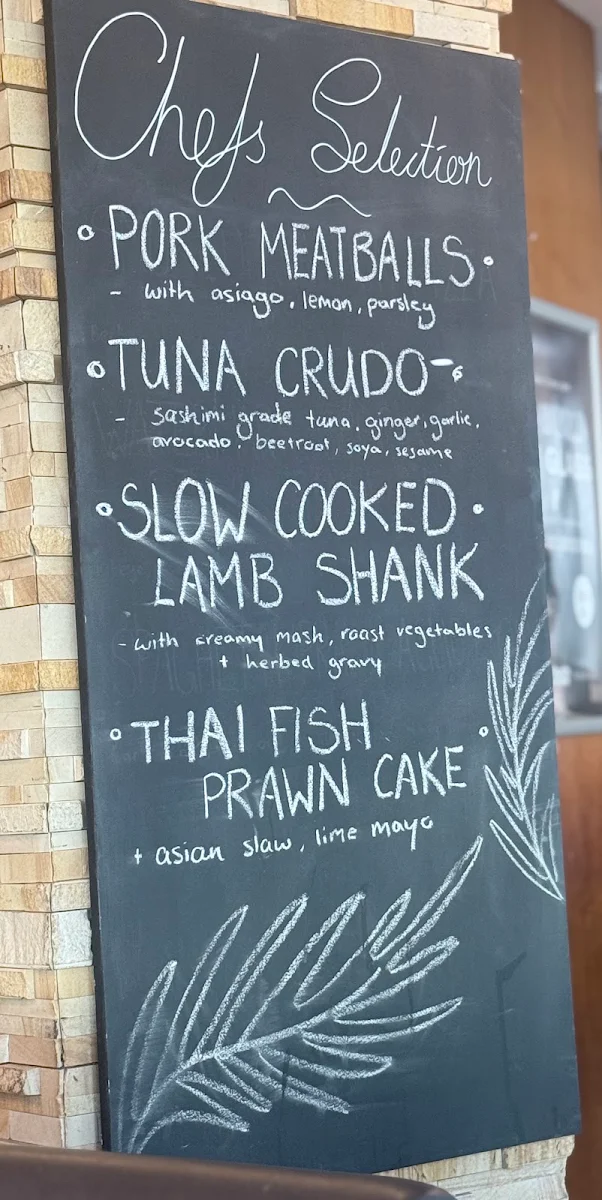 Chefs Selection
PORK MEATBALLS
- with asiago, lemon, parsley
TUNA CRUDO
- sashimi grade tuna, ginger, garlic,
avocado, beetroot, soya, sesame
SLOW COOKED
LAMB SHANK
- with creamy mash, roast vegetables
+ herbed gravy
THAI FISH
PRAWN CAKE
+ asian slaw, lime mayo